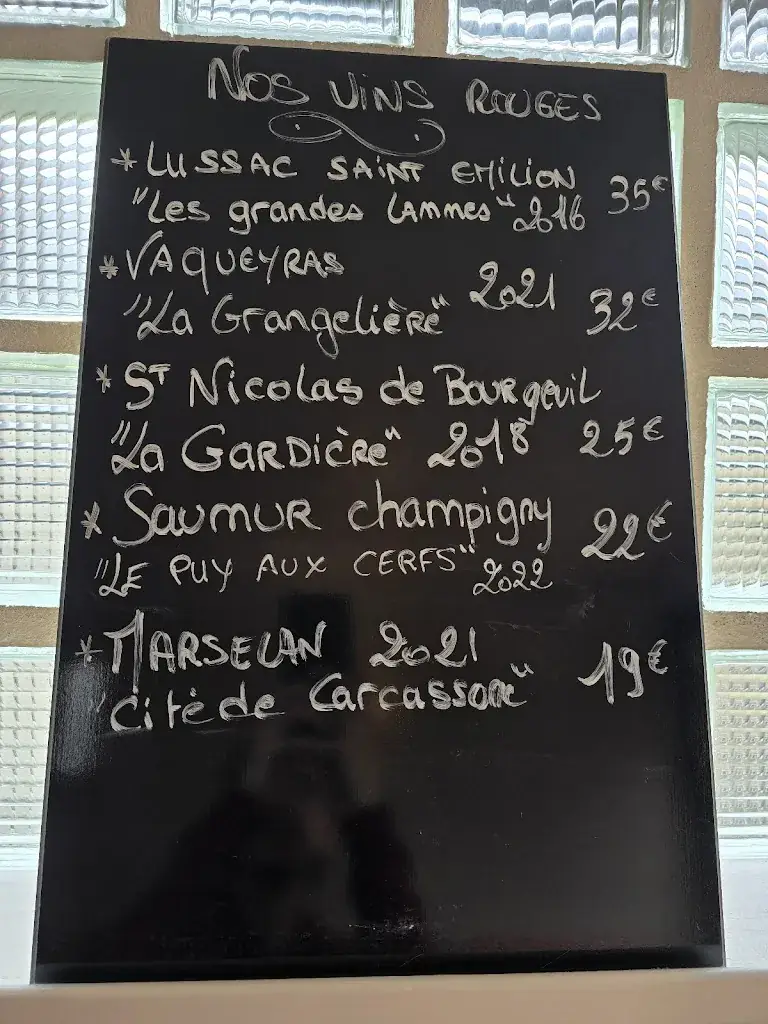 Nos vins rouges
* Lussac Saint Emilion
"Les grandes Lammes" 2016 35€
* Vaqueyras
"La Grangelière" 2021 32€
* St Nicolas de Bourgeuil
"La Gardière" 2018 25€
* Saumur champigny
"LE PUY AUX CERFS" 2022 22€
* MARSELAN 2021
"cité de Carcassonne" 19€